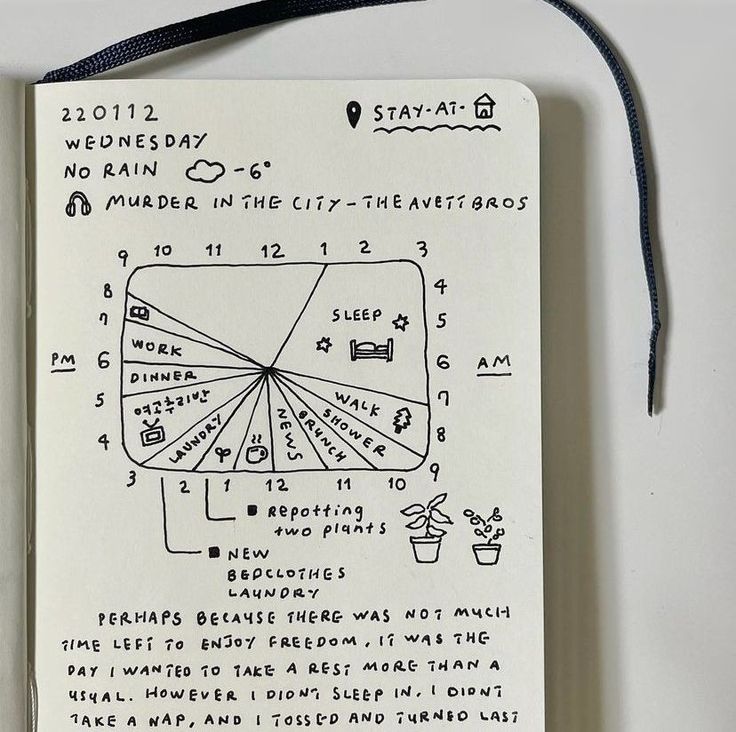 220112
STAY-AT-
WEDNESDAY
NO RAIN -6°
MURDER IN THE CITY - THE AVETT BROS
9 10 11 12 1 2 3
8 4
7 5
PM 6 6 AM
5 7
4 8
3 2 1 12 11 10 9
SLEEP
WORK
DINNER
여고추리반
LAUNDRY
NEWS
BRUNCH
SHOWER
WALK
Repotting
two plants
NEW
BEDCLOTHES
LAUNDRY
PERHAPS BECAUSE THERE WAS NOT MUCH
TIME LEFT TO ENJOY FREEDOM, IT WAS THE
DAY I WANTED TO TAKE A REST MORE THAN A
USUAL. HOWEVER I DIDNT SLEEP IN. I DIDNT
TAKE A NAP, AND I TOSSED AND TURNED LAST